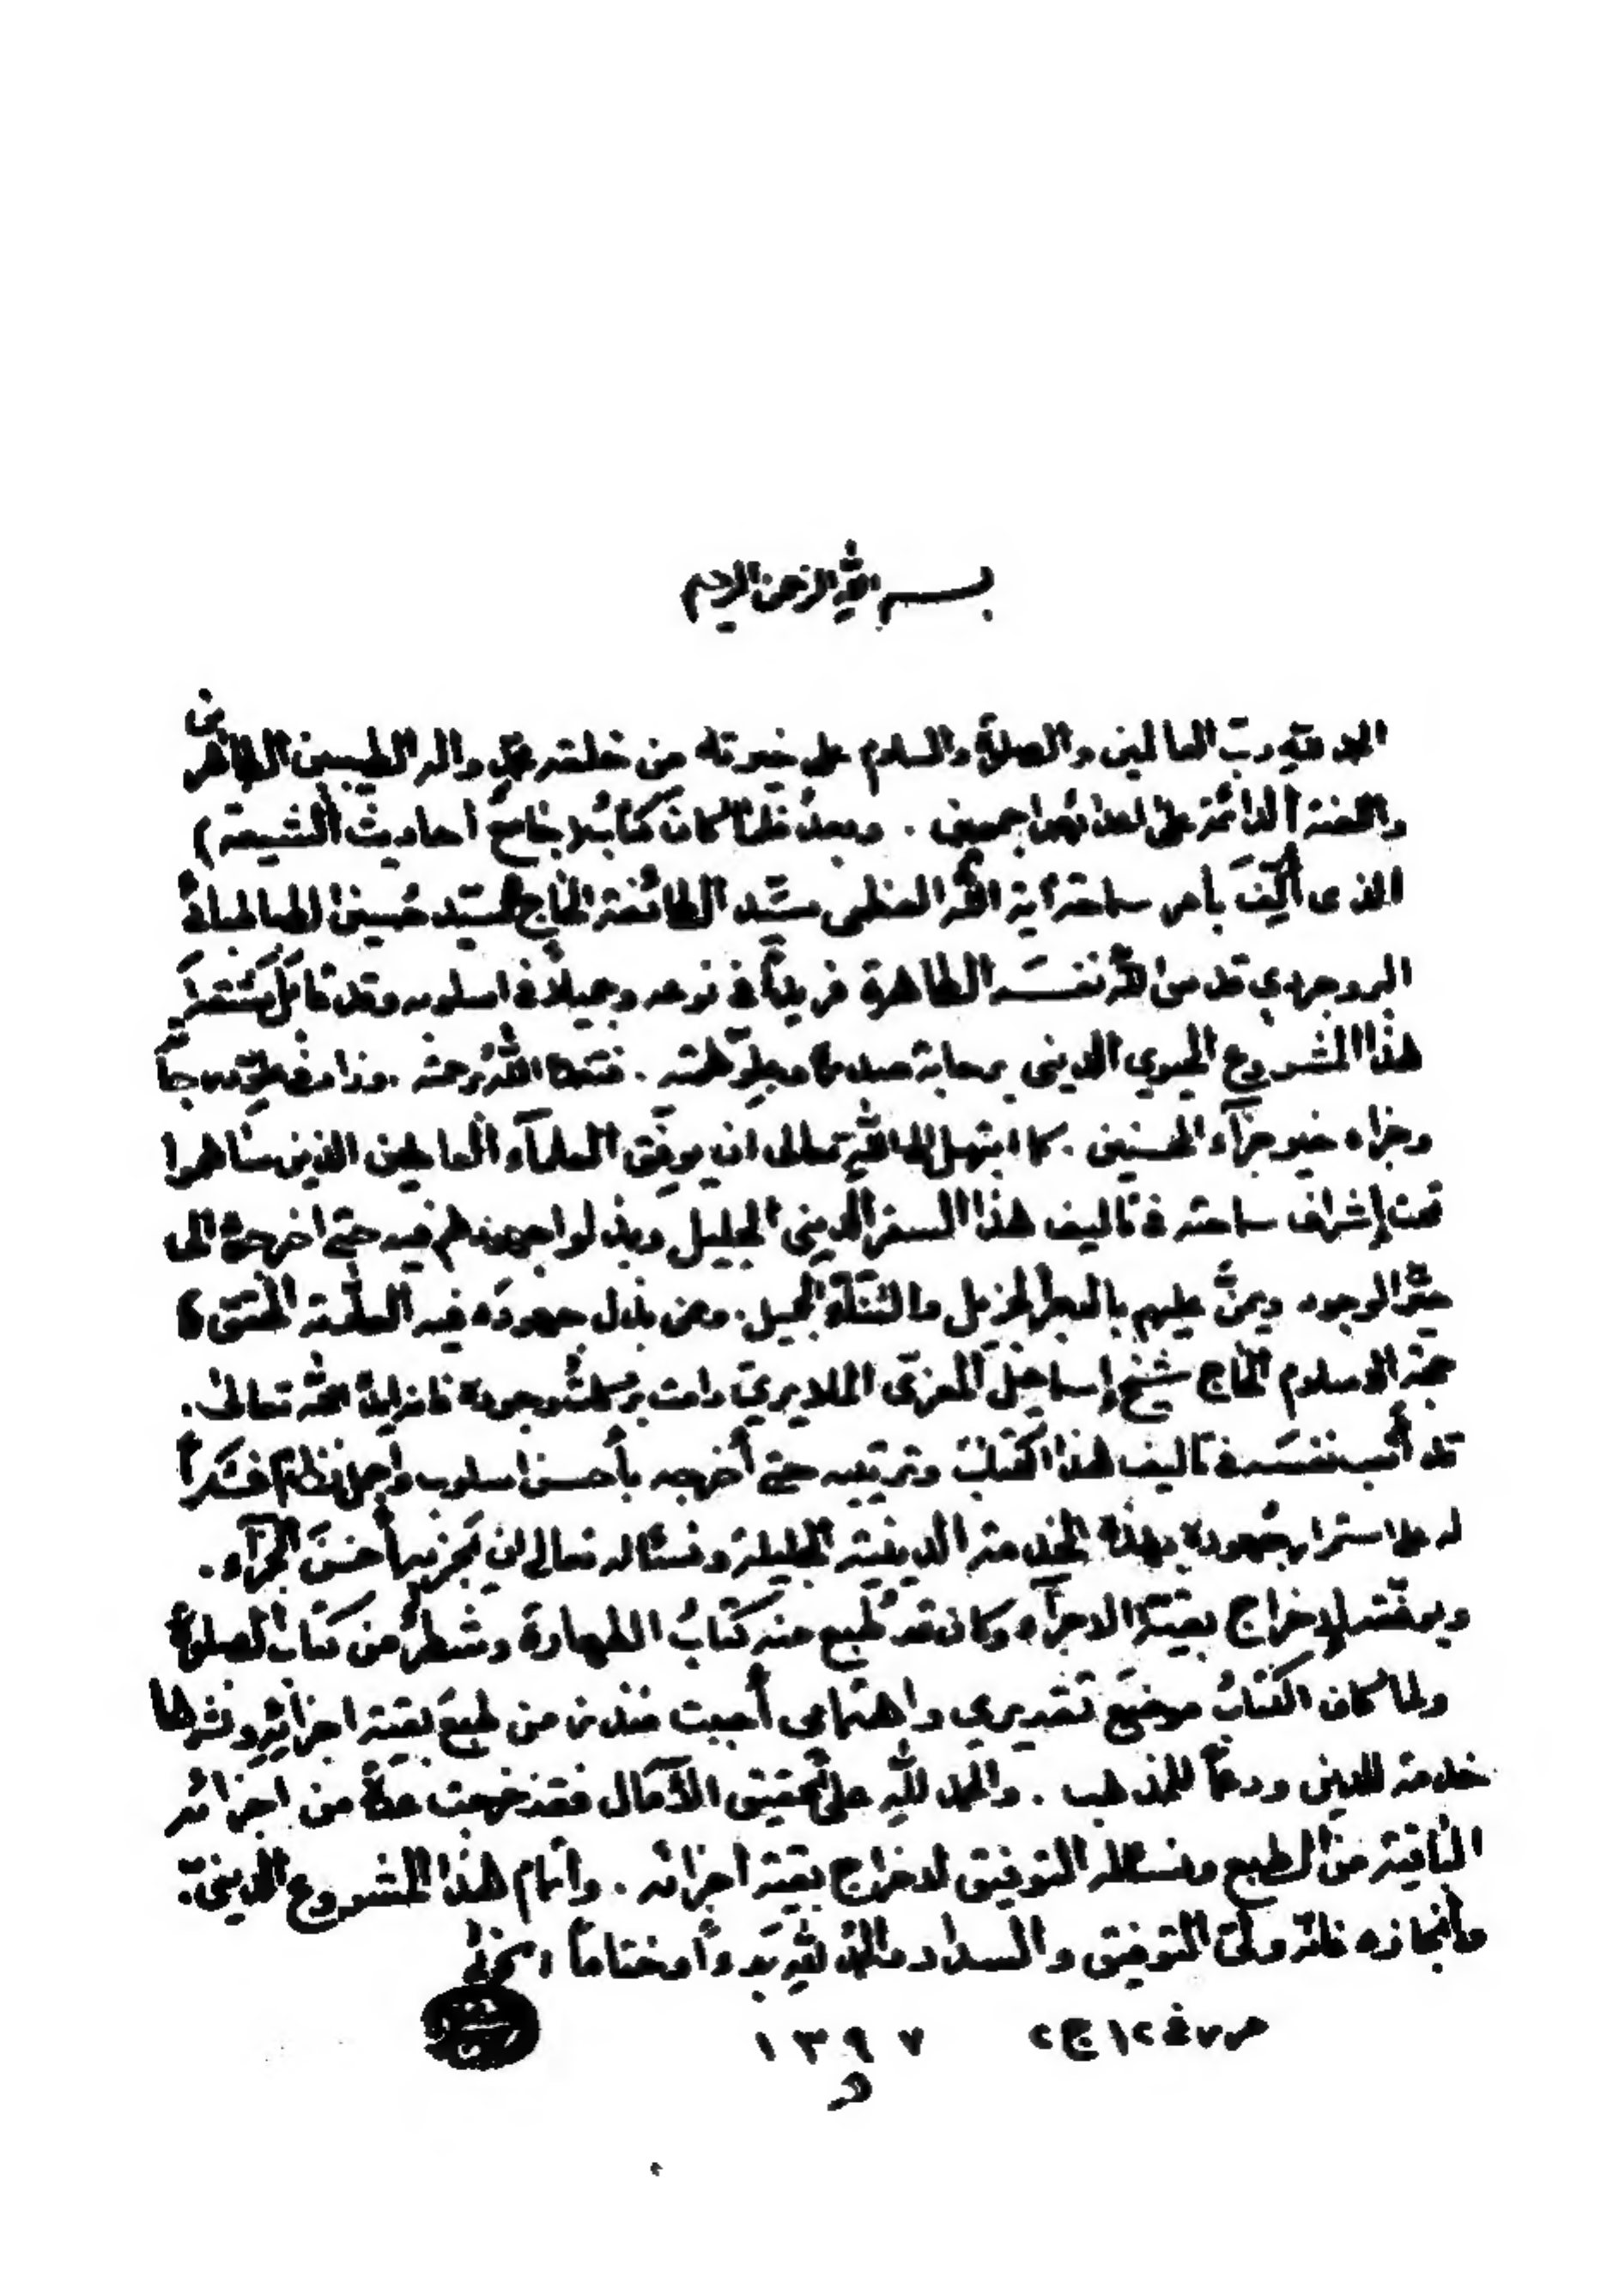 بسم الله الرحمن الرحيم
الحمد لله ربّ العالمين والصلاة والسلام على خيرته من خلقه محمد وآله الطيبين الطاهرين
واللعنة الدائمة على اعدائهم اجمعين . وبعدُ فلما كان كتابُ (جامع أحاديث الشيعة)
الذى أُلِّفَ بأمر سماحة آية الله العظمى سيّد الطائفة الحاج السيّد حُسين الطباطبائىّ
البروجردي قدس الله نفسَه الطاهرة فريداً فى نوعه وجميلاً فى اسلوبه وقد
هذا المشروع الحيوي الدينى برحابة صدره وعلوّ همّته . فتغمده اللهُ برحمته . وزاد فى علوّ درجاته
وجزاه خير جزآء المحسنين . كما ابتهل الى اللهِ تعالى ان يوفِّق العلمآء العاملين الذين ساهموا
تحت إشراف سماحته فى تاليف هذا السفر الدينى الجليل وبذلوا جهودهم فيه حتى اخرجوه الى
حيّز الوجود ويمنَّ عليهم بالاجر الجزيل والثناء الجميل . وممن بذل جهودَه فيه العلّامة المتتبّع
حجة الاسلام الحاج شيخ إسماعيل المعزّى الملايريّ دامت بركات وجوده فانه ايده الله تعالى .
قد أتعب نفسَه فى تاليف هذا الكتاب وترتيبه حتى أخرجه بأحسن اسلوب واجمل نظام فشكراً
له على استمرار جُهوده بهذه الخدمة الدينيّة الجليلة ونسئاله تعالى ان يجزيه أحسنَ الجزآء .
ويوفقه لإخراج بقيّة الاجزآء وكان قد طُبع منه كتابُ الطهارة وشطرٌ من كتاب الصلوة
ولما كان الكتابُ موضعَ تقديري واهتمامى أحببت منذ زمن طبعَ بقيّة اجزائِه ونشرها
خدمة للدين ودعماً للمذهب . والحمد للهِ على تحقيق الآمال فقد خرجت عدّة من اجزائه
الباقية من الطبع ونسئاله التوفيق لاخراج بقيّة اجزائه . واتمام هذا المشروع الدينىّ .
وانجازه فانّه ولىّ التوفيق والسداد والحمد للهِ بدواً وختاماً الخوئي
فى ١٢ ج٢ ١٣٩٧